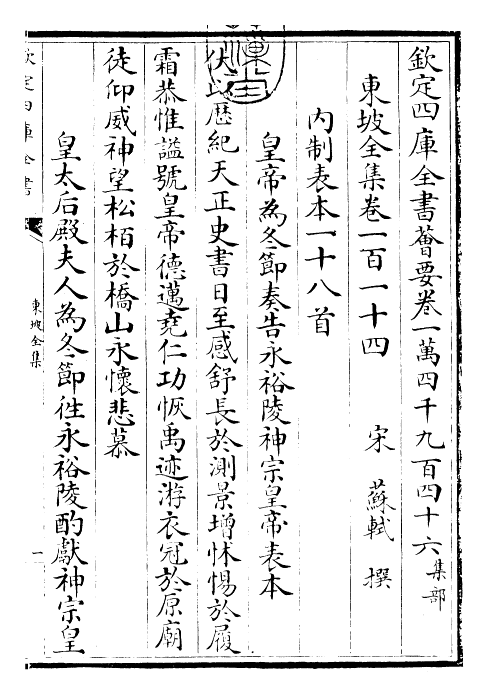 欽定四庫全書薈要卷一萬四千九百四十六集部
東坡全集卷一百一十四
宋 蘇軾 撰
内制表本一十八首
皇帝為冬節奏告永裕陵神宗皇帝表本
伏以歴紀天正史書日至感舒長於測景增怵惕於履
霜恭惟謚號皇帝德邁堯仁功恢禹迹游衣冠於原廟
徒仰威神望松栢於橋山永懷悲慕
皇太后殿夫人為冬節徃永裕陵酌獻神宗皇
欽定四庫全書
東坡全集
一